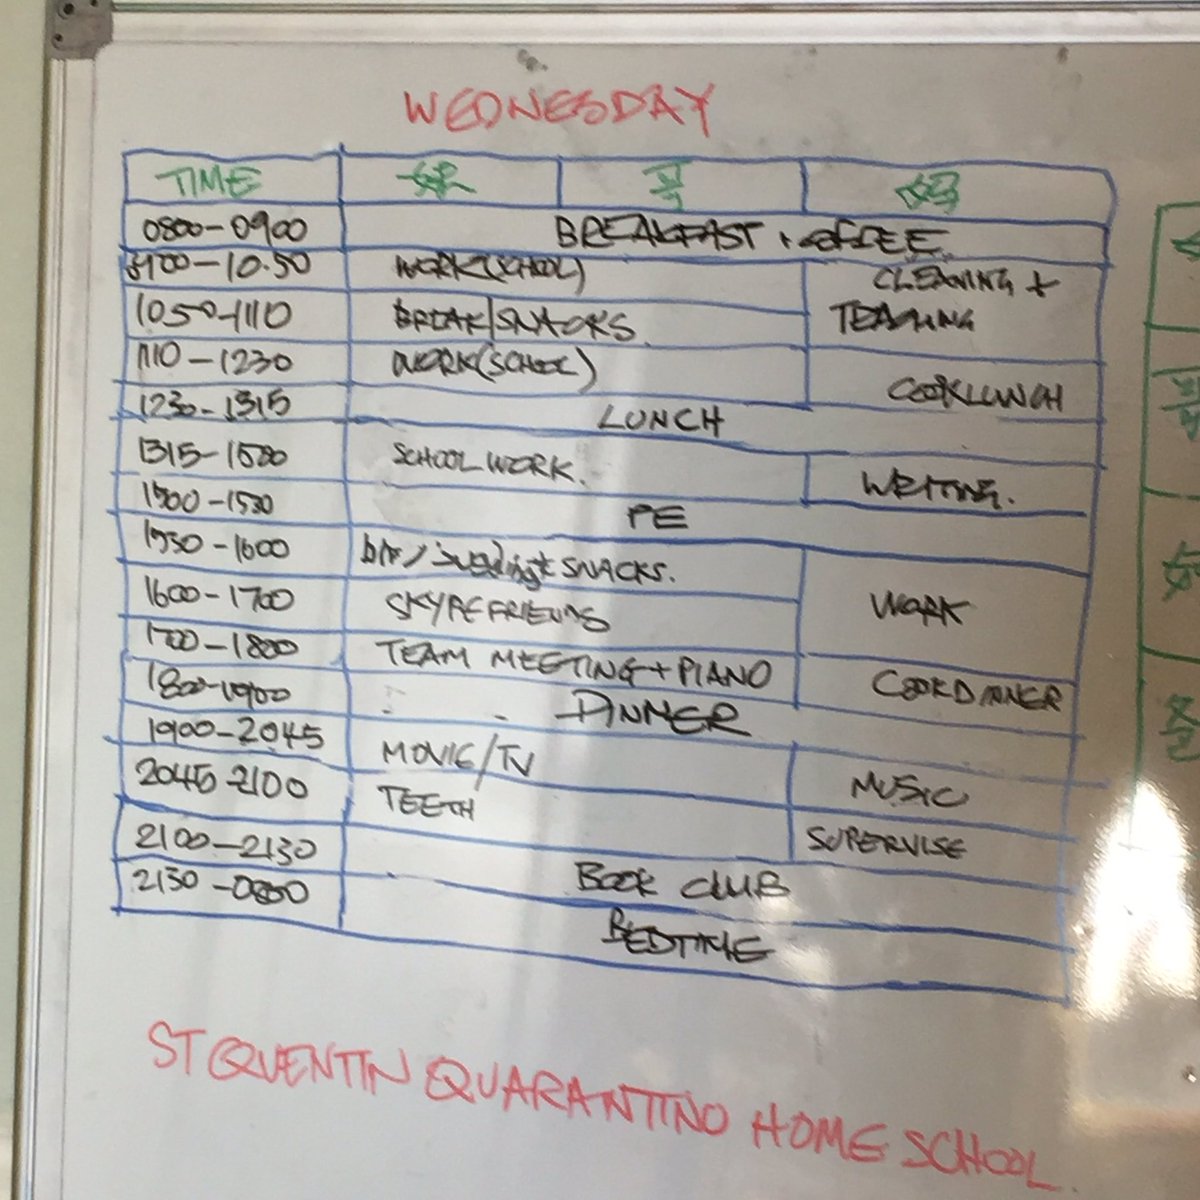 WEDNESDAY
TIME
0800-0900 BREAKFAST + COFFEE
0900-10.50 WORK(SCHOOL) CLEANING +
1050-1110 BREAK/SNACKS TEACHING
1110-1230 WORK(SCHOOL) COOK LUNCH
1230-1315 LUNCH
1315-1500 SCHOOL WORK. WRITING.
1500-1530 PE
1530-1600 SNACKS.
1600-1700 SKYPE FRIENDS WORK
1700-1800 TEAM MEETING + PIANO COOK DINNER
1800-1900 DINNER
1900-2045 MOVIE/TV MUSIC
2045-2100 TEETH SUPERVISE
2100-2130 BOOK CLUB
2130-0800 BEDTIME
ST QUENTIN QUARANTINO HOME SCHOOL